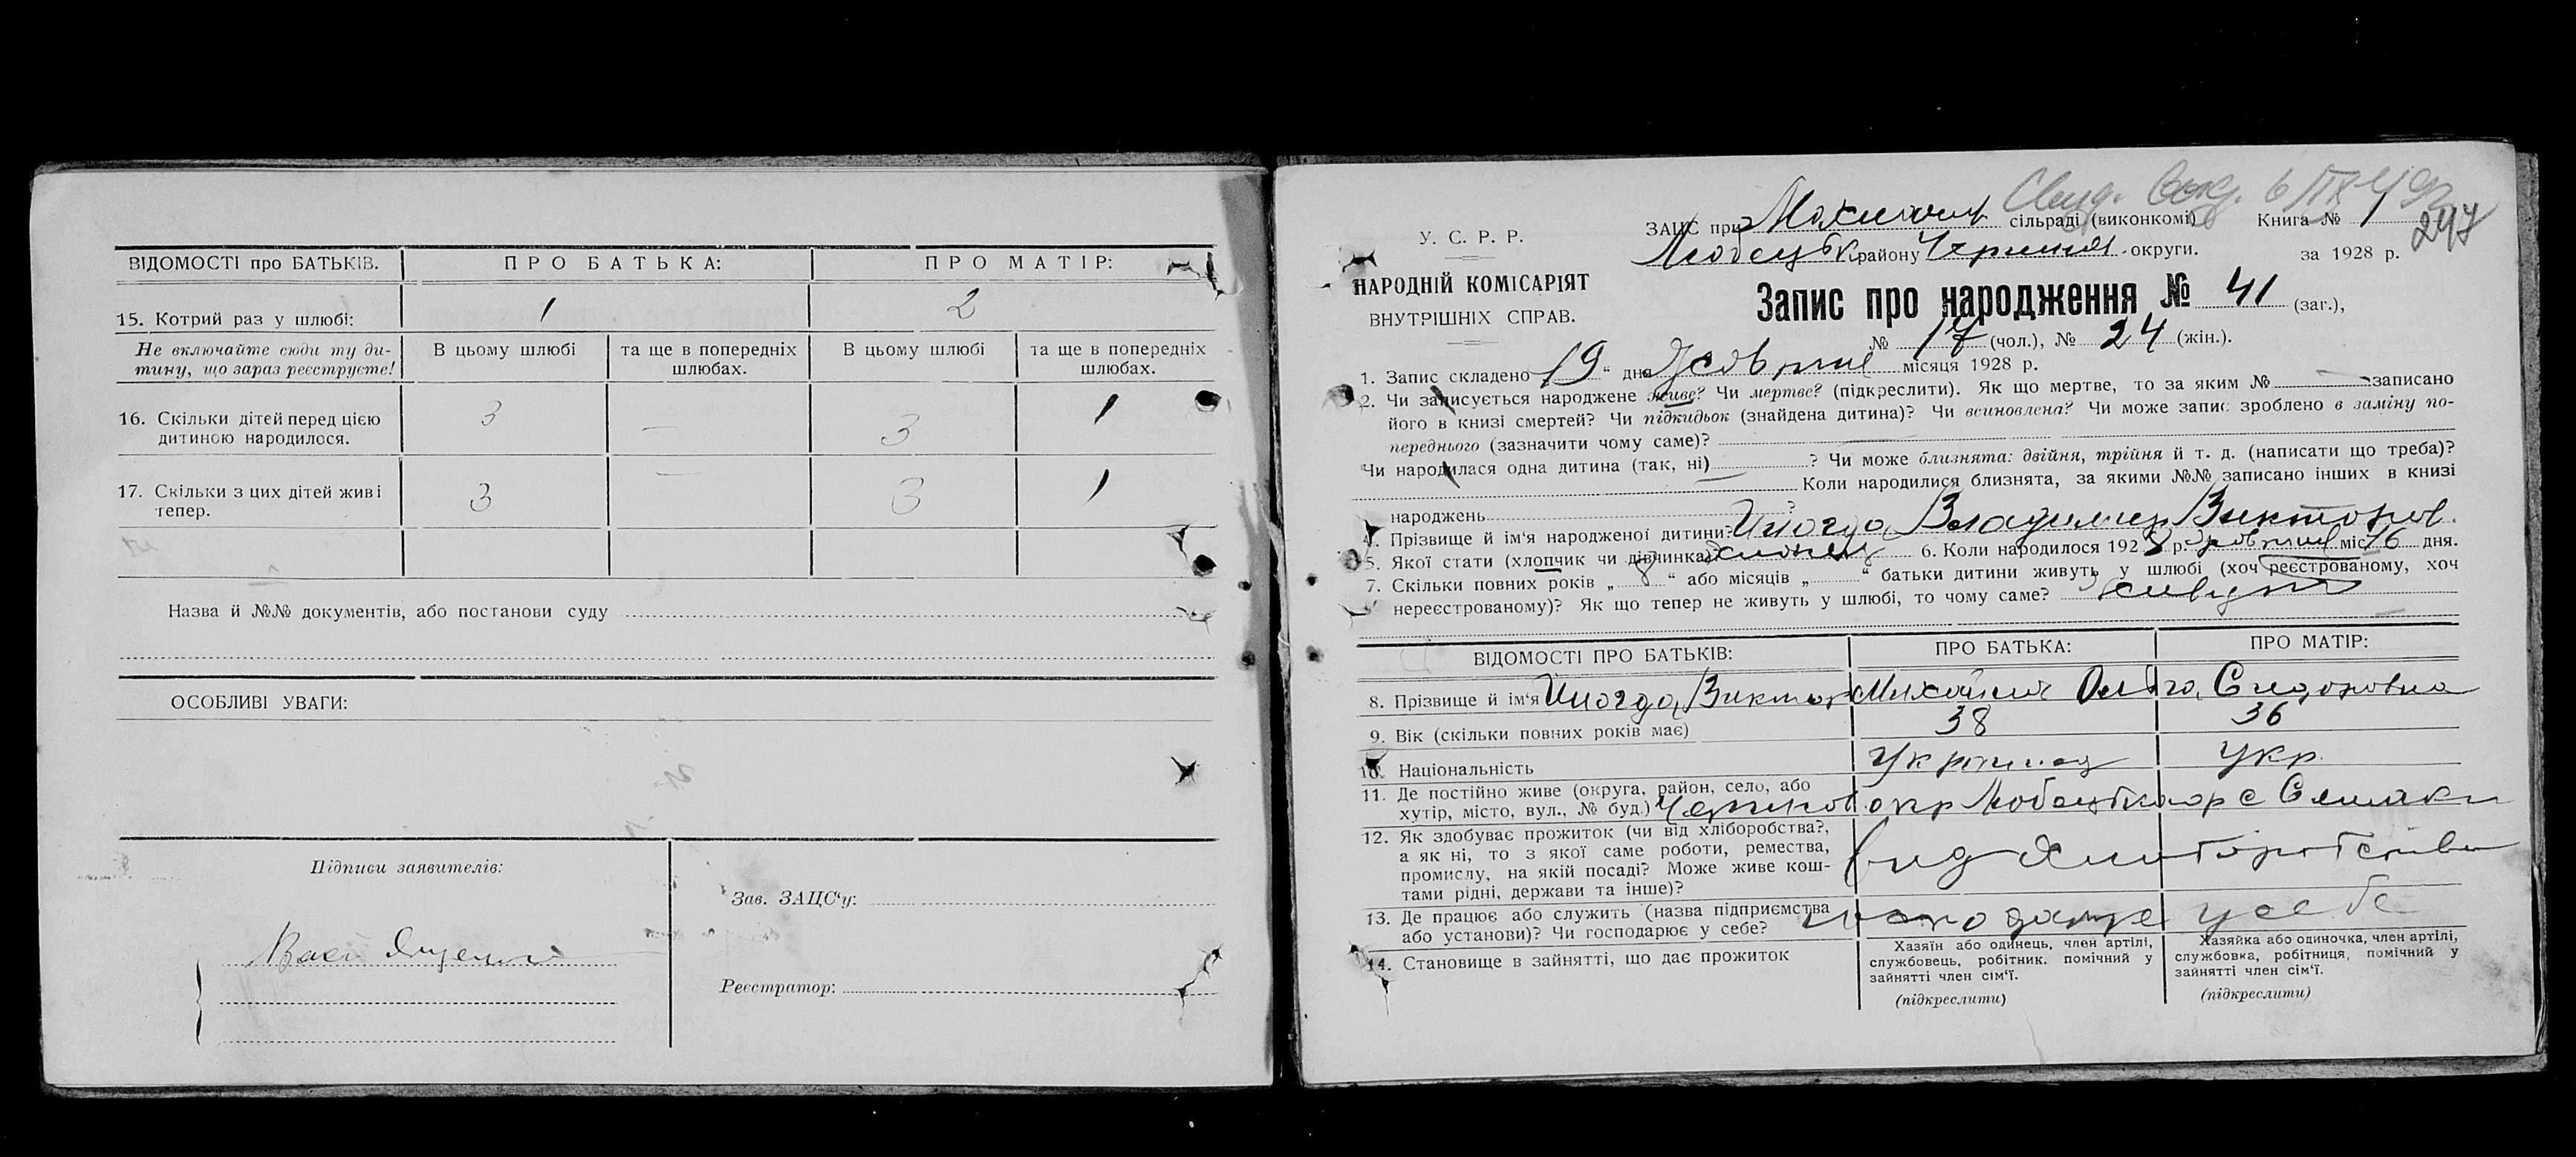 ВІДОМОСТІ про БАТЬКІВ. ПРО БАТЬКА: ПРО МАТІР:
15. Котрий раз у шлюбі: 1 2
Не включайте сюди ту ди- В цьому шлюбі та ще в попередніх В цьому шлюбі та ще в попередніх
тину, що зараз реєструєте! шлюбах. шлюбах.
16. Скільки дітей перед цією 3 — 3 1
дитиною народилося.
17. Скільки з цих дітей живі 3 — 3 1
тепер.
Назва й №№ документів, або постанови суду
ОСОБЛИВІ УВАГИ:
Підписи заявителів:
Зав. ЗАЦС'у:
Реєстратор:
У. С. Р. Р.
НАРОДНІЙ КОМІСАРІЯТ
ВНУТРІШНІХ СПРАВ.
ЗАЦС при сільраді (виконкомі) Книга № 1
247
Любецьк. району Черниг. округи. за 1928 р.
Запис про народження № 41 (заг.),
№ 17 (чол.), № 24 (жін.).
1. Запис складено 19 " дня Жовтня місяця 1928 р.
2. Чи записується народжене живе? Чи мертве? (підкреслити). Як що мертве, то за яким № — записано
його в книзі смертей? Чи підкидьок (знайдена дитина)? Чи всиновлена? Чи може запис зроблено в заміну по-
переднього (зазначити чому саме)?
Чи народилася одна дитина (так, ні) ? Чи може близнята: двійня, трійня й т. д. (написати що треба)?
Коли народилися близнята, за якими №№ записано інших в книзі
народжень ?
4. Прізвище й ім'я народженої дитини? Владимир Викторов.
5. Якої стати (хлопчик чи дівчинка) хлопец 6. Коли народилося 1928 р. Жовтня міс. 16 дня.
7. Скільки повних років „ 8 " або місяців „ " батьки дитини живуть у шлюбі (хоч реєстрованому, хоч
нереєстрованому)? Як що тепер не живуть у шлюбі, то чому саме? живут
ВІДОМОСТІ ПРО БАТЬКІВ: ПРО БАТЬКА: ПРО МАТІР:
8. Прізвище й ім'я Виктор Михайлов Ольга Сидоровна
9. Вік (скільки повних років має) 38 36
10. Національність Українец Укр.
11. Де постійно живе (округа, район, село, або
хутір, місто, вул., № буд.) окр Любецька с
12. Як здобуває прожиток (чи від хліборобства?,
а як ні, то з якої саме роботи, ремества,
промислу, на якій посаді? Може живе кош-
тами рідні, держави та інше)? від хліборобства
13. Де працює або служить (назва підприємства
або установи)? Чи господарює у себе? господарує у себе
14. Становище в зайнятті, що дає прожиток
Хазяїн або одинець, член артілі,
службовець, робітник. помічний у
зайнятті член сім'ї.
(підкреслити)
Хазяйка або одиночка, член артілі,
службовка, робітниця, помічний у
зайнятті член сім'ї.
(підкреслити)